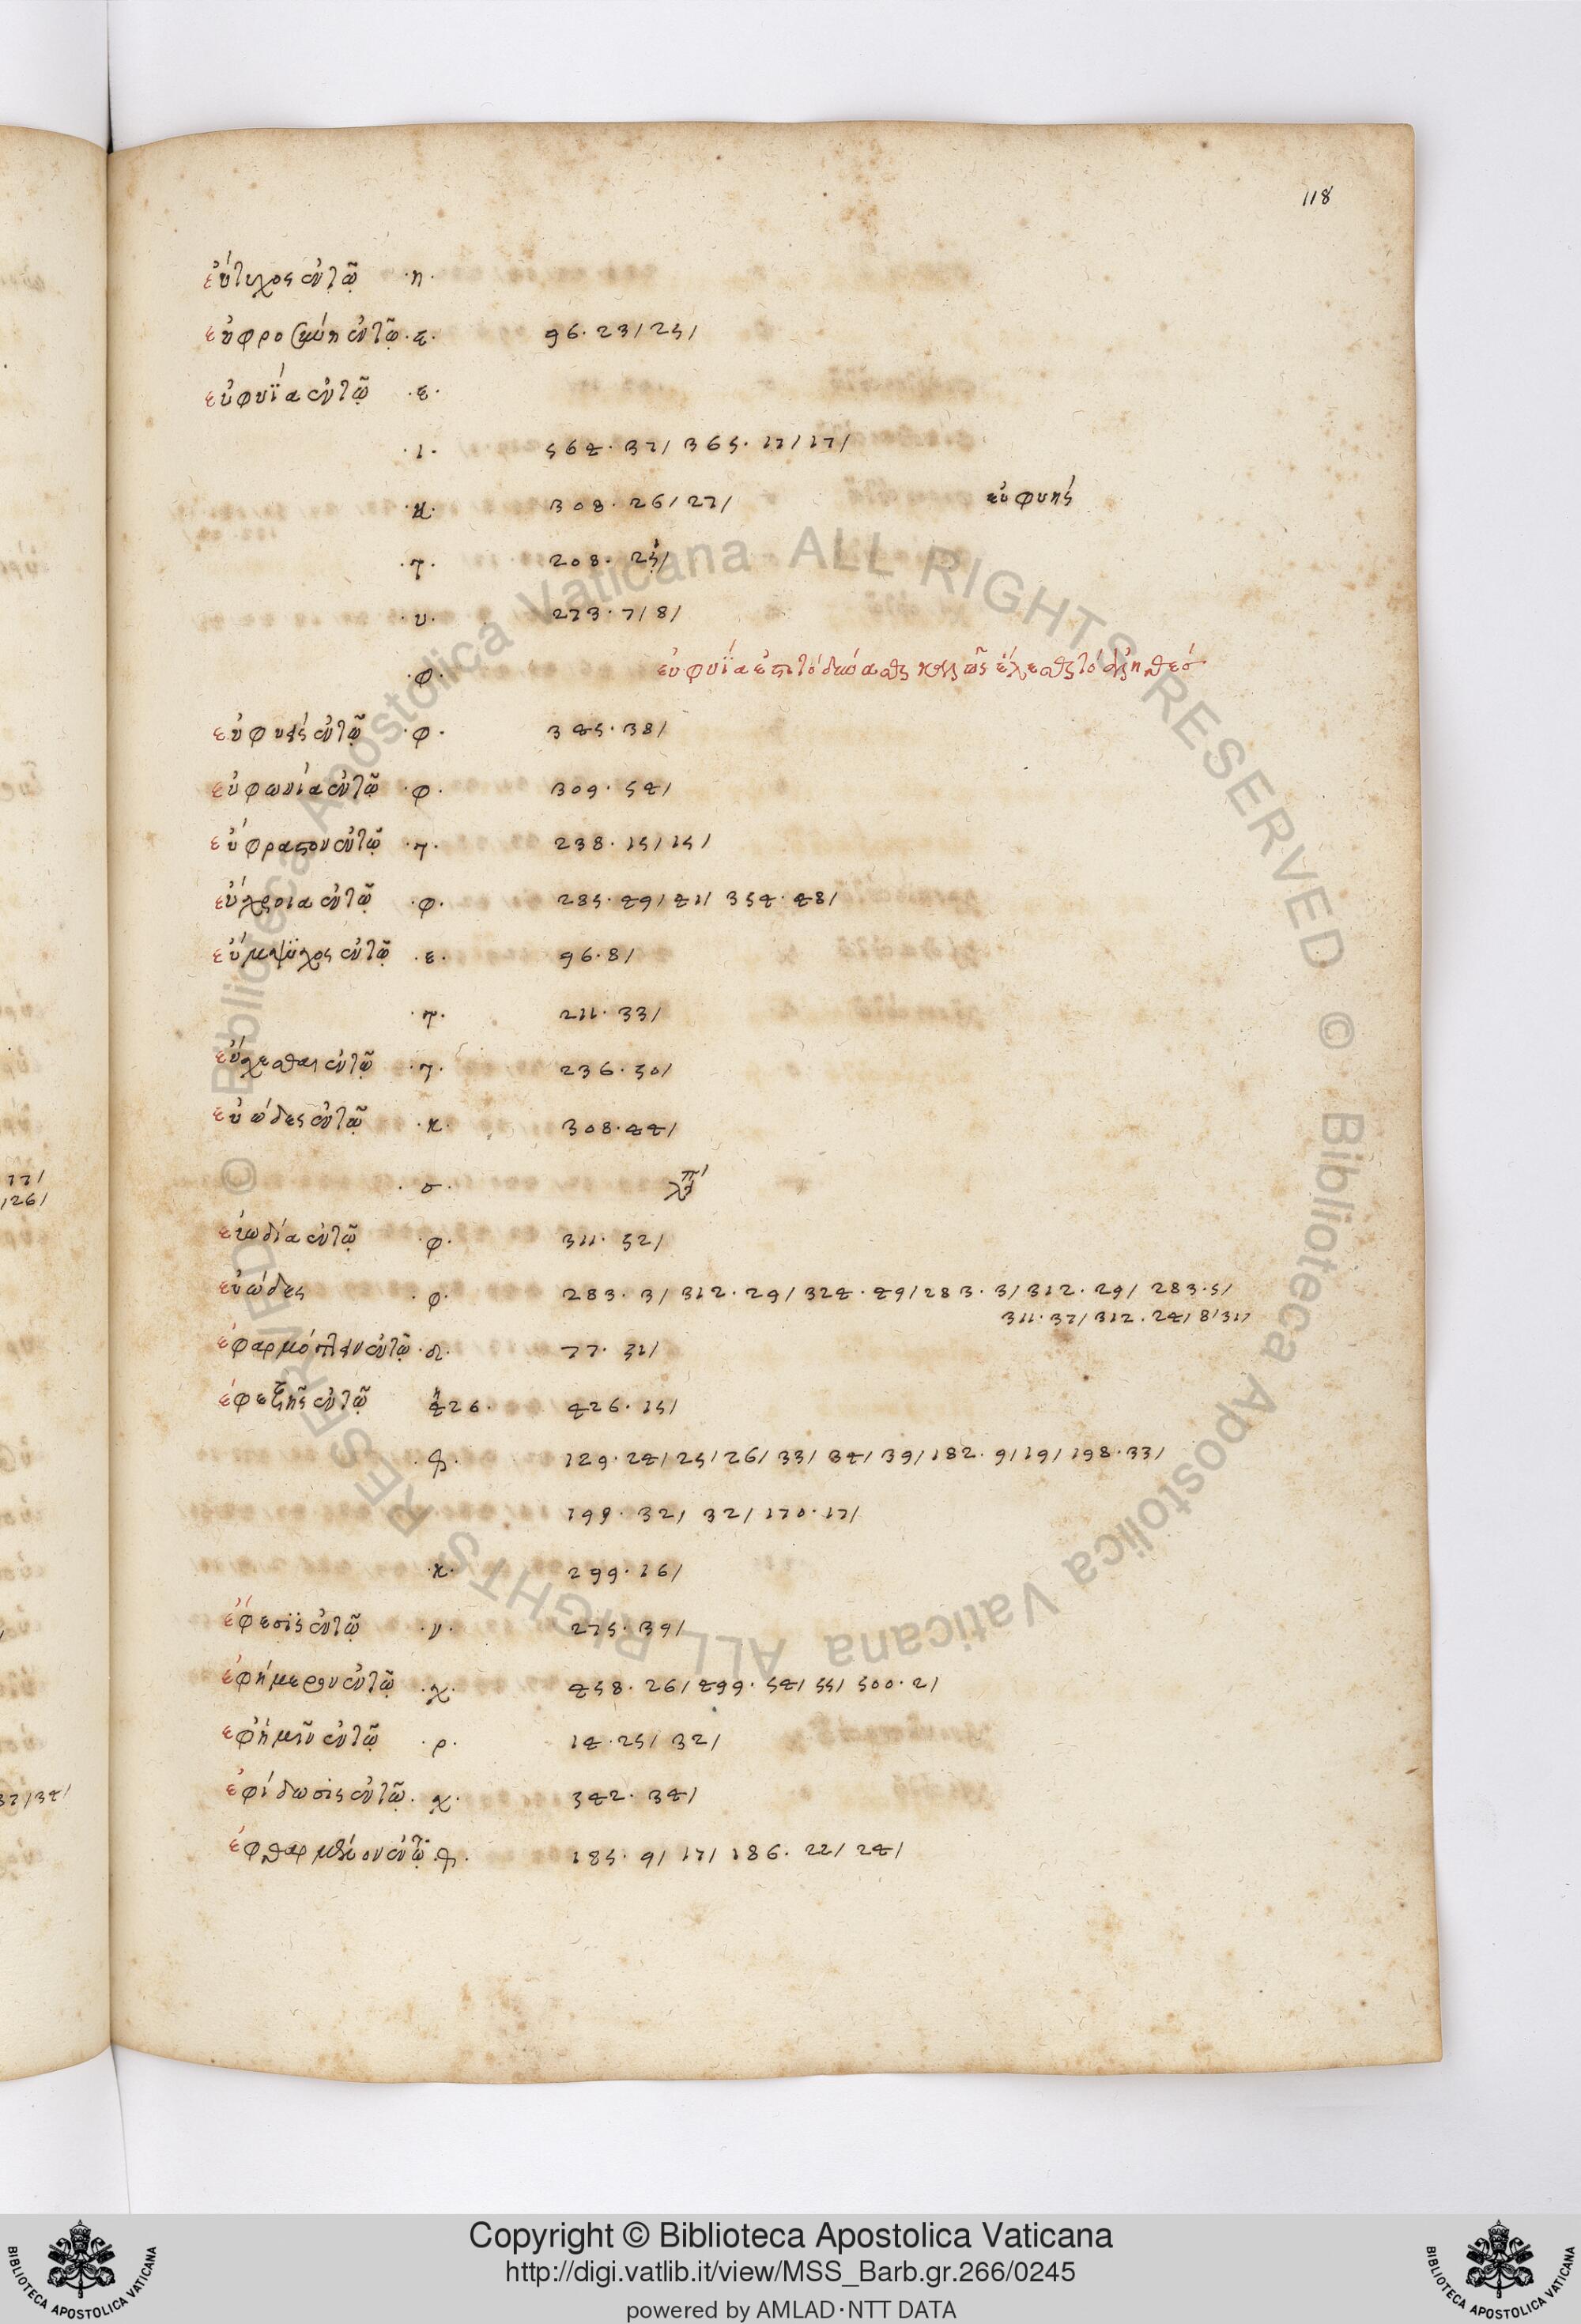 118
εὔτυχος ἐν τῷ ·η·
εὐφροσύνη ἐν τῷ ·ε· 96·23/25/
εὐφυΐα ἐν τῷ ·ε·
·ι· 564·37/ 365·17/17/
·κ· 308·26/27/ εὐφυής
·τ· 208·25/
·υ· 273·7/8/
·φ· εὐφυΐα
εὐφυὲς ἐν τῷ ·φ· 345·38/
εὐφωνία ἐν τῷ ·φ· 309·54/
ἐν τῷ ·τ· 238·15/15/
εὔχροια ἐν τῷ ·φ· 285·49/41/ 354·48/
ἐν τῷ ·ε· 96·8/
·τ· 211·33/
εὔχεσθαι ἐν τῷ ·τ· 236·50/
εὐώδες ἐν τῷ ·κ· 308·44/
·σ·
εὐωδία ἐν τῷ ·φ· 311·52/
εὐώδες ·φ· 283·3/ 312·29/ 324·49/ 283·3/ 312·29/ 283·5/
311·37/ 312·24/ 8/31/
ἐφαρμόττειν ἐν τῷ ·δ· 77·31/
ἐφεξῆς ἐν τῷ 426· 426·15/
129·24/25/26/33/34/39/182·9/19/198·33/
199·32/ 32/ 170·17/
·κ· 299·16/
ἔφεσις ἐν τῷ ·ν· 275·39/
ἐφήμερον ἐν τῷ ·χ· 458·26/499·54/55/500·2/
ἐφ' ἡμῖν ἐν τῷ ·ρ· 14·25/ 32/
ἐν τῷ ·χ· 342·34/
ἐν τῷ 185·9/17/186·22/24/
77/
/26/
37/34/
© Biblioteca Apostolica Vaticana ALL RIGHTS RESERVED © Biblioteca Apostolica Vaticana ALL RIGHTS RESERVED
BIBLIOTECA APOSTOLICA VATICANA
Copyright © Biblioteca Apostolica Vaticana
http://digi.vatlib.it/view/MSS_Barb.gr.266/0245
powered by AMLAD·NTT DATA
BIBLIOTECA APOSTOLICA VATICANA